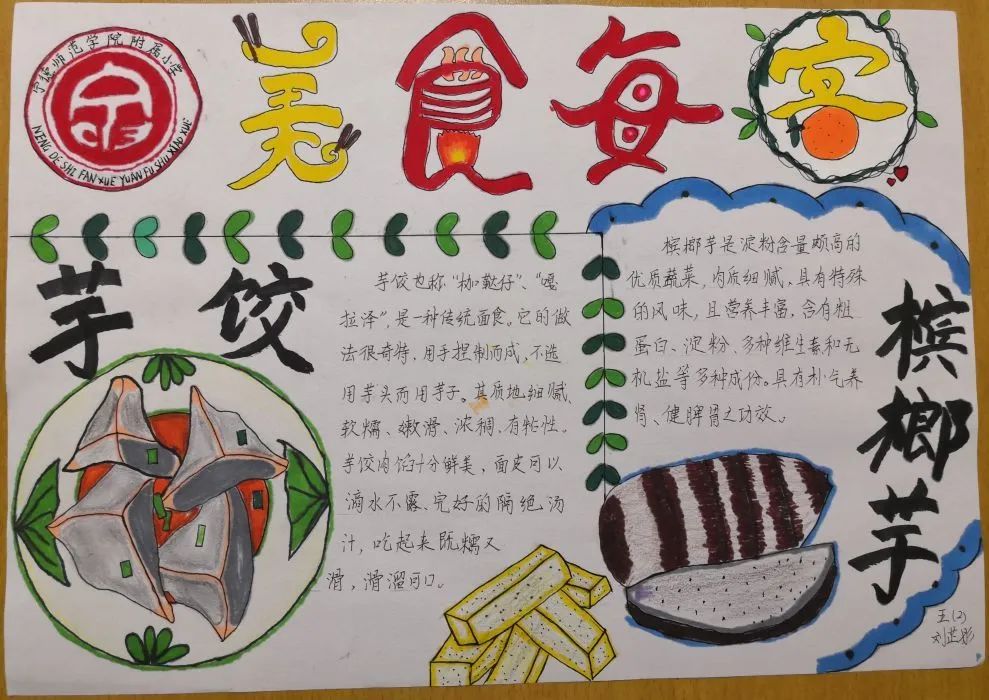 宁德师范学院附属小学
NING DE SHI FAN XUE YUAN FU SHU XIAO XUE
美食每客
芋饺
芋饺也称“枷鞑仔”、“嘎
拉泽”，是一种传统面食。它的做
法很奇特，用手捏制而成，不选
用芋头而用芋子。其质地细腻、
软糯、嫩滑、浓稠、有粘性。
芋饺肉馅十分鲜美，面皮可以
滴水不露、完好的隔绝汤
汁，吃起来既糯又
滑，滑溜可口。
槟榔芋是淀粉含量颇高的
优质蔬菜，肉质细腻，具有特殊
的风味，且营养丰富，含有粗
蛋白、淀粉、多种维生素和无
机盐等多种成份。具有补气养
肾、健脾胃之功效。
槟榔芋
五(2)
刘芷彤